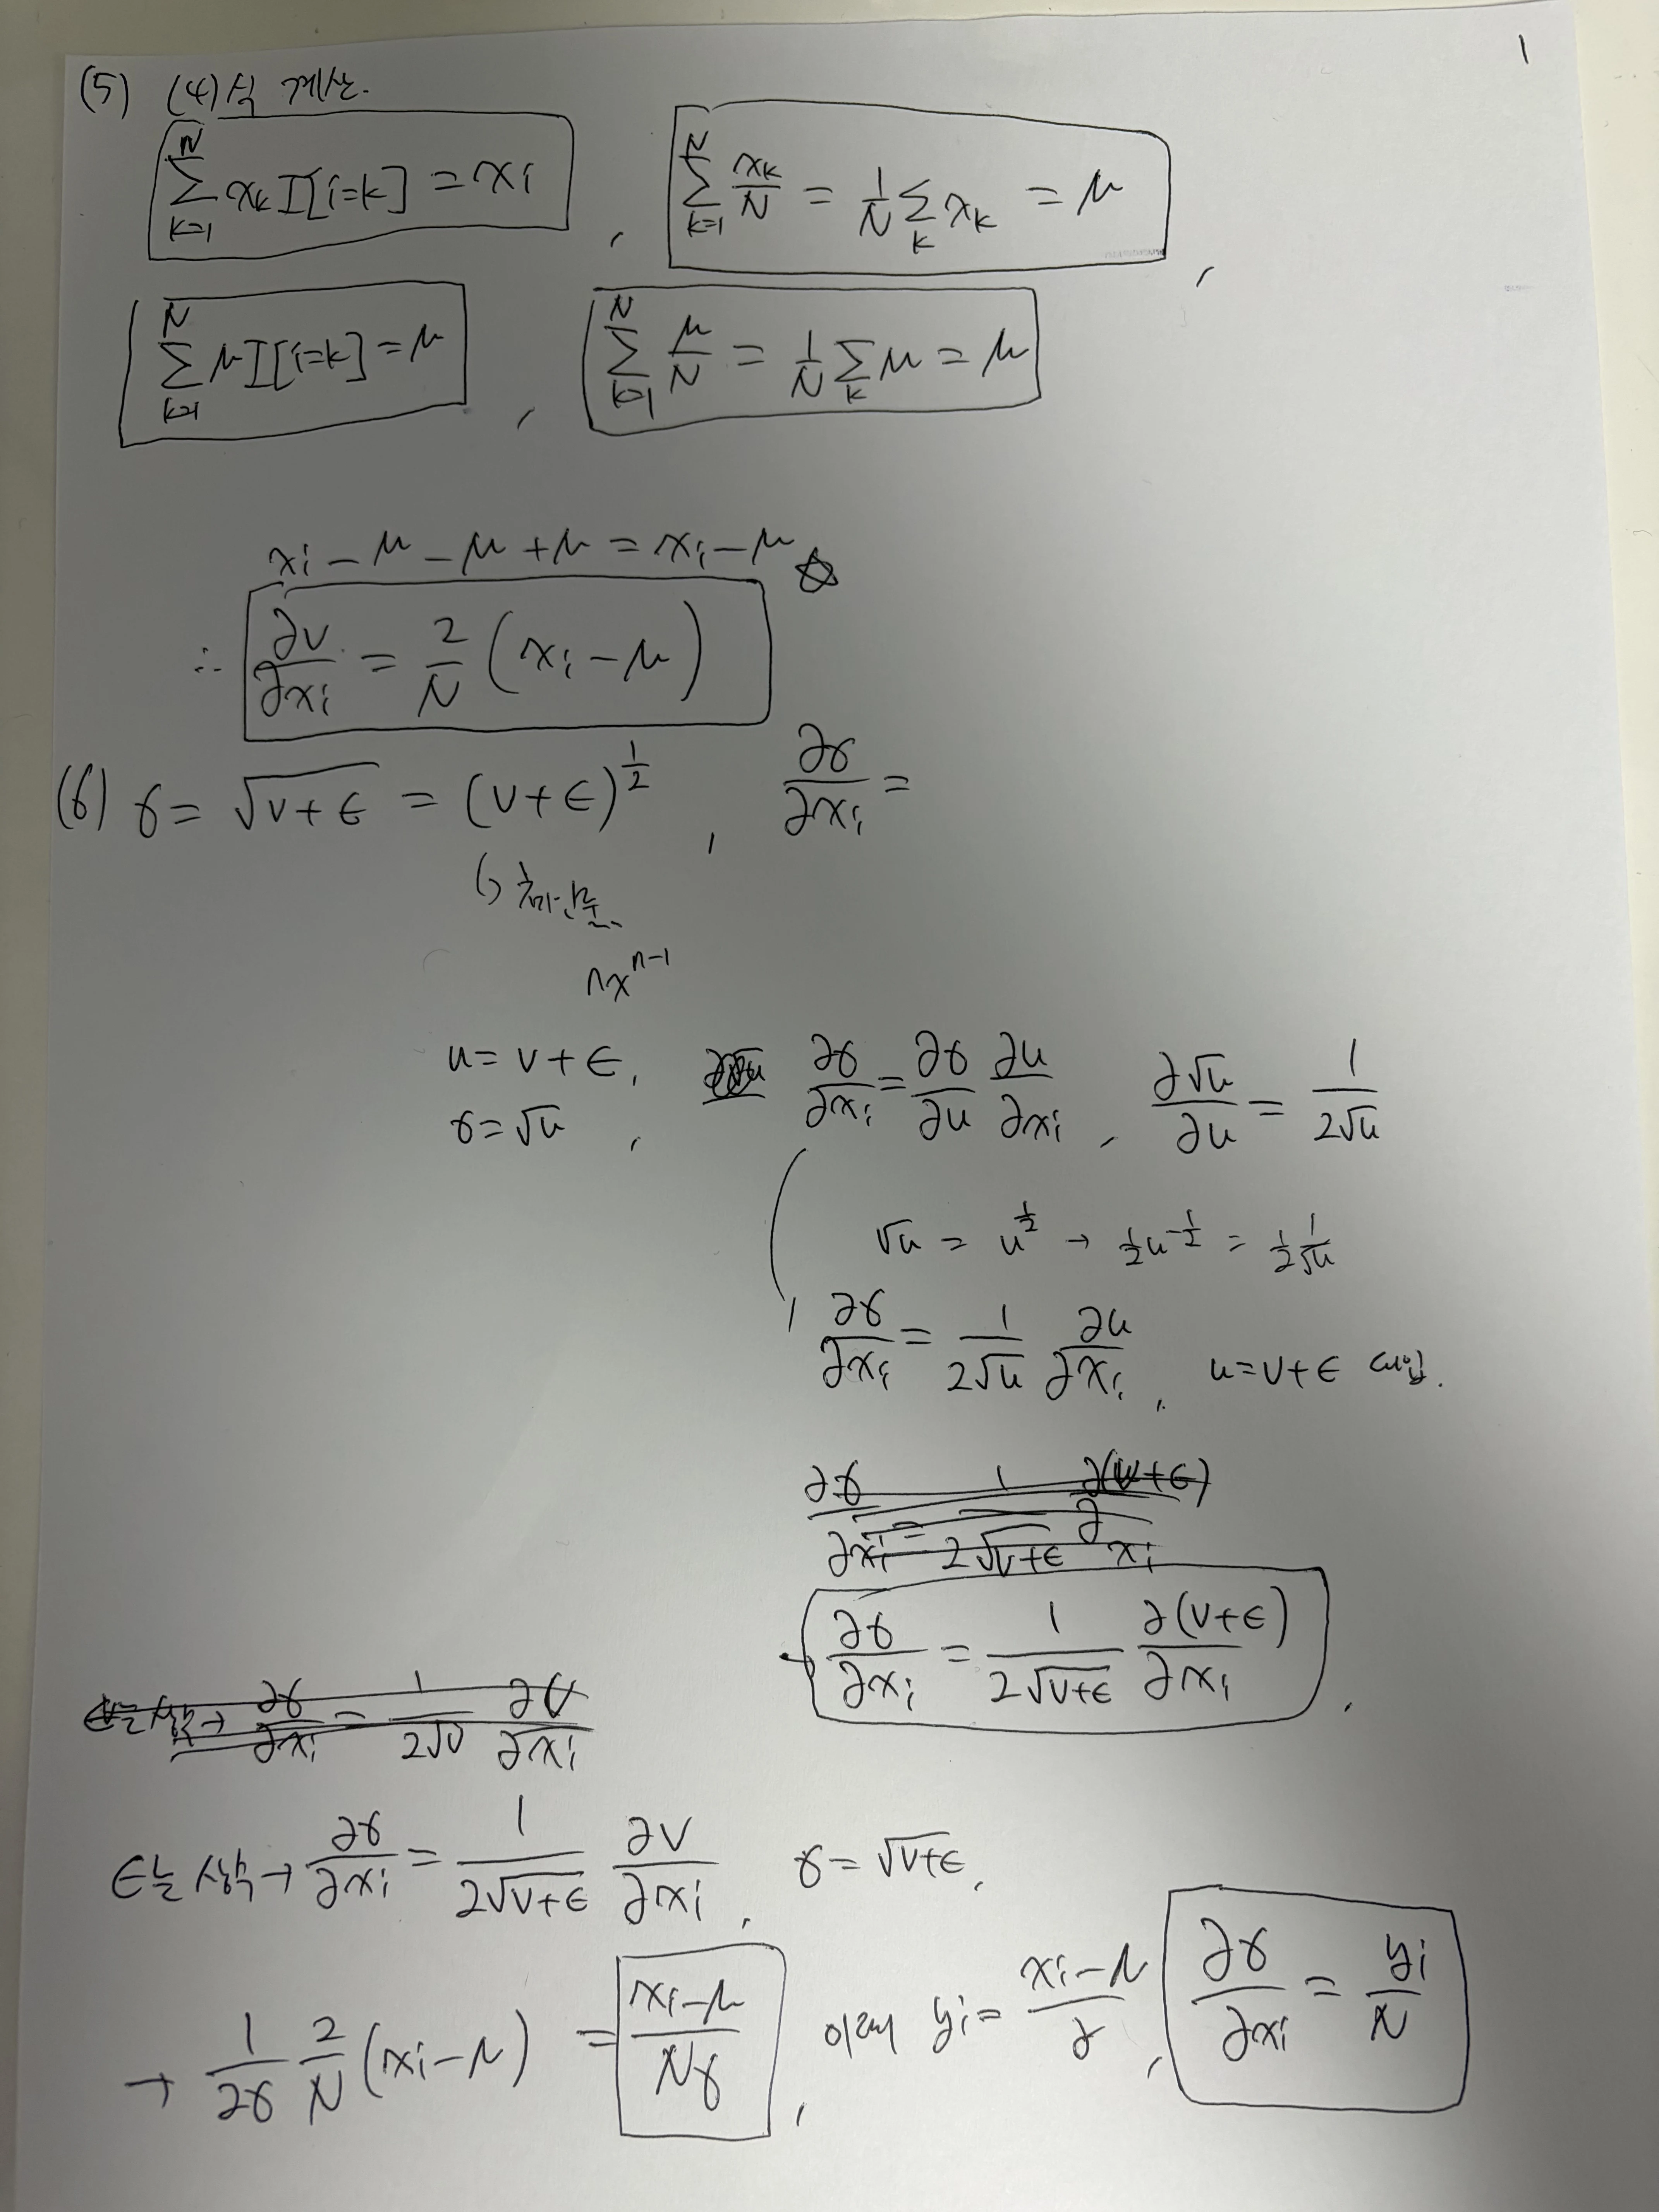 1
(5) (4)식 계산.
$\sum_{k=1}^{N} x_k I[i=k] = x_i$ , $\sum_{k=1}^{N} \frac{x_k}{N} = \frac{1}{N}\sum_{k} x_k = \mu$ ,
$\sum_{k=1}^{N} \mu I[i=k] = \mu$ , $\sum_{k=1}^{N} \frac{\mu}{N} = \frac{1}{N}\sum_{k} \mu = \mu$
$x_i - \mu - \mu + \mu = x_i - \mu$ ☆
$\therefore \frac{\partial v}{\partial x_i} = \frac{2}{N}(x_i - \mu)$
(6) $\sigma = \sqrt{v+\epsilon} = (v+\epsilon)^{\frac{1}{2}}$ , $\frac{\partial \sigma}{\partial x_i} =$
$nx^{n-1}$
$u = v + \epsilon$, $\frac{\partial \sigma}{\partial x_i} = \frac{\partial \sigma}{\partial u} \frac{\partial u}{\partial x_i}$ , $\frac{\partial \sqrt{u}}{\partial u} = \frac{1}{2\sqrt{u}}$
$\sigma = \sqrt{u}$ ,
$\sqrt{u} = u^{\frac{1}{2}} \rightarrow \frac{1}{2}u^{-\frac{1}{2}} = \frac{1}{2}\frac{1}{\sqrt{u}}$
$\frac{\partial \sigma}{\partial x_i} = \frac{1}{2\sqrt{u}} \frac{\partial u}{\partial x_i}$ , $u = v + \epsilon$ 대입.
$\frac{\partial \sigma}{\partial x_i} = \frac{1}{2\sqrt{v+\epsilon}} \frac{\partial (v+\epsilon)}{\partial x_i}$
$\rightarrow \frac{\partial \sigma}{\partial x_i} = \frac{1}{2\sqrt{v+\epsilon}} \frac{\partial (v+\epsilon)}{\partial x_i}$ .
ϵ는 상수 → $\frac{\partial \sigma}{\partial x_i} = \frac{1}{2\sqrt{v}} \frac{\partial v}{\partial x_i}$
ϵ는 상수 → $\frac{\partial \sigma}{\partial x_i} = \frac{1}{2\sqrt{v+\epsilon}} \frac{\partial v}{\partial x_i}$ , $\sigma = \sqrt{v+\epsilon}$,
$\rightarrow \frac{1}{2\sigma} \frac{2}{N}(x_i - \mu) = \frac{x_i - \mu}{N\sigma}$ , 이때 $y_i = \frac{x_i - \mu}{\sigma}$ , $\frac{\partial \sigma}{\partial x_i} = \frac{y_i}{N}$